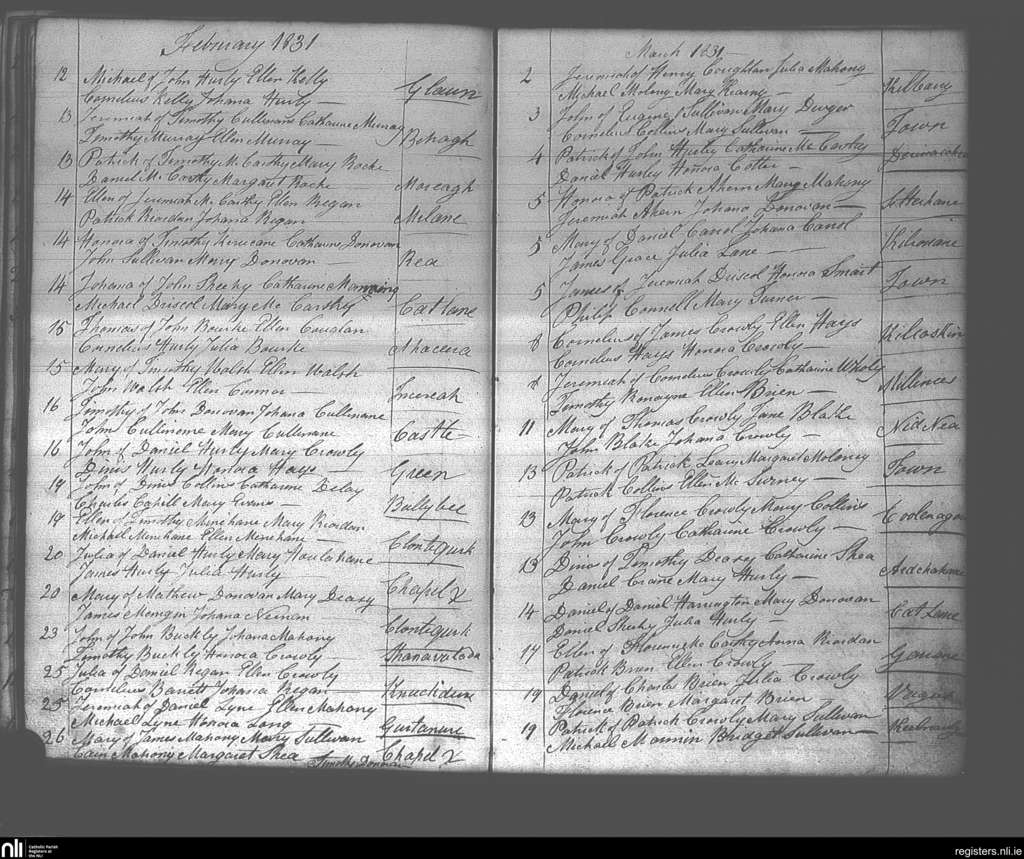 February 1831
12 Michael of John Hurly Ellen Kelly
Cornelius Kelly Johana Hurly — Glaun
13 Jeremiah of Timothy Cullinane Catharine Murray
Timothy Murray Ellen Murray — Behagh
13 Patrick of Timothy Mc Carthy Mary Roche
Daniel Mc Carthy Margaret Roche Mareagh
14 Ellen of Jeremiah Mc Carthy Ellen Regan
Patrick Reardan Johana Regan Milane
14 Honora of Timothy Kerucane Catharine Donovan
John Sullivan Mary Donovan — Rea
14 Johana of John Sheehy Catharine Manning
Michael Driscol Mary Mc Carthy Cat Lane
15 Thomas of John Bourke Ellen Couglan
Cornelius Hurly Julia Bourke — Ahacera
15 Mary of Timothy Walsh Ellen Walsh
John Walsh Ellen Connor —
16 Timothy of John Donovan Johana Cullinane
John Cullinane Mary Cullinane Castle
16 John of Daniel Hurly Mary Crowly
Denis Hurly Honora Hays — Green
19 John of Denis Collins Catharine Delay
Charles Cahill Mary Evans — Ballybee
19 Ellen of Timothy Minehane Mary Reardan
Michael Minehane Ellen Minehane — Clontiqurk
20 Julia of Daniel Hurly Mary Houlahane
James Hurly Julia Hurly
20 Mary of Mathew Donovan Mary Deasy Chapel
James Mongin Johana
23 John of John Buckly Johana Mahony Clontiqurk
Timothy Buckly Honora Crowly —
25 Julia of Daniel Regan Ellen Crowly
Cornelius Barrett Johana Regan — Knuckdun
25 Jeremiah of Daniel Lyne Ellen Mahony
Michael Lyne Honora Long Gurtanure
26 Mary of James Mahony Mary Sullivan
Cain Mahony Margaret Shea Timothy Donovan Chapel
March 1831
2 Jeremiah of Henry Coughlan Julia Mahony
Michael Molony Mary Kearny — Kilbary
3 John of Eugene Sullivan Mary Dwyer
Cornelius Collins Mary Sullivan — Town
4 Patrick of John Hurly Catharine Mc Carthy
Daniel Hurley Honora Cotter —
5 Honora of Patrick Ahern Mary Mahony
Jeremiah Ahern Johana Donovan —
5 Mary of Daniel Carrol Johana Carrol
James Grace Julia Lane — Kilronane
5 James of Jeremiah Driscol Honora Smart
Philip Connell Mary Turner — Town
8 Cornelius of James Crowly Ellen Hays
Cornelius Hays Honora Crowly — Kilcaskin
8 Jeremiah of Cornelius Crowly Catharine Wholy
Timothy Ronayne Ellen Brien —
11 Mary of Thomas Crowly Jane Blake
John Blake Johana Crowly — Nid Nea
13 Patrick of Patrick Leary Margaret Moloney
Patrick Collins Ellen Mc Swiney — Town
13 Mary of Florence Crowly Mary Collins
John Crowly Catharine Crowly —
13 Denis of Timothy Deasy Catharine Shea
Daniel Crane Mary Hurly —
14 Daniel of Daniel Harrington Mary Donovan
Daniel Sheehy Julia Hurly — Cat Lane
17 Ellen of Florence Mc Carthy Anna Reardan
Patrick Brien Ellen Crowly —
19 Daniel of Charles Brien Julia Crowly
Florence Brien Margaret Brien
19 Patrick of Patrick Crowly Mary Sullivan
Michael Mannin Bridget Sullivan —
nli
Catholic Parish
Registers at
the NLI
registers.nli.ie